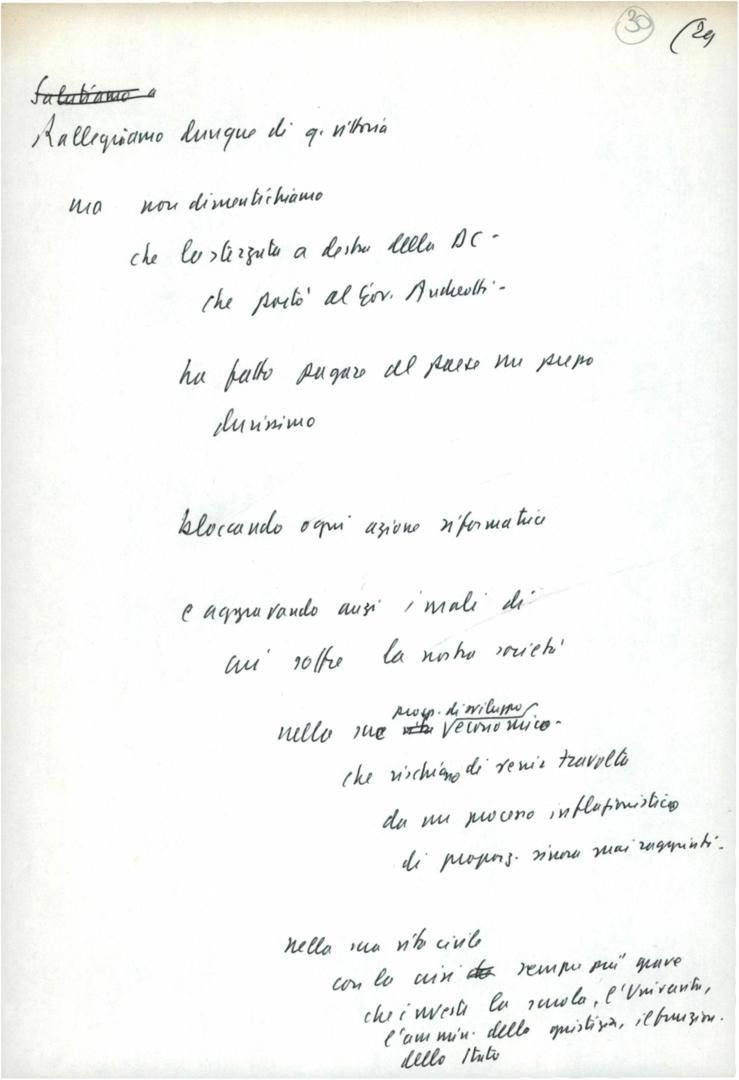 30 (29
Salutiamo a
Rallegriamo dunque di q. vittoria
ma non dimentichiamo
che la sterzata a destra della DC -
che portò al Gov. Andreotti -
ha fatto pagare al paese un prezzo
durissimo
bloccando ogni azione riformatrice
e aggravando anzi i mali di
cui soffre la nostra società
prosp. di sviluppo
nelle sue vita economico -
che rischiano di venir travolte
da un processo inflazionistico
di proporz. sinora mai raggiunti -
nella sua vita civile
con la crisi sempre più grave
che investe la scuola, l'Università,
l'ammin. della giustizia, il funzion.
dello Stato